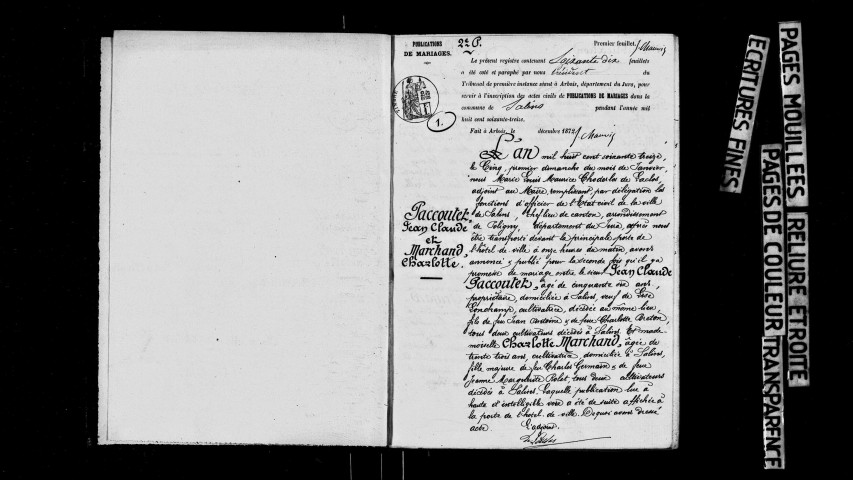 PUBLICATIONS
DE MARIAGES.
2e P.
Premier feuillet.
Le présent registre contenant Soixante dix feuillets
a été coté et paraphé par nous Président du
Tribunal de première instance séant à Arbois, département du Jura, pour
servir à l'inscription des actes civils de PUBLICATIONS DE MARIAGES dans la
commune de Salins pendant l'année mil
huit cent soixante-treize.
Fait à Arbois, le décembre 1872.
1.
L'an mil huit cent soixante treize,
le Cinq, premier dimanche du mois de Janvier,
nous Marie Louis Maurice Choderlos de Laclos,
adjoint au Maire, remplissant, par délégation les
fonctions d'officier de l'Etat civil de la ville
de Salins, chef lieu de canton, arrondissement
de Poligny, département du Jura, après nous
être transporté devant la principale porte de
l'hôtel de ville à onze heures du matin, avons
annoncé & publié pour la seconde fois qu'il y a
promesse de mariage entre le sieur Jean Claude
Paccoutet, âgé de cinquante ans,
propriétaire, domicilié à Salins, veuf de
cultivatrice, décédée au même lieu,
fils de feu Jean Antoine & de feue Charlotte
tous deux cultivateurs décédés à Salins. Et made-
moiselle Charlotte Marchand, âgée de
trente trois ans, cultivatrice, domiciliée à Salins,
fille majeure de feu Charles Germain & de feue
Jeanne Marguerite Rolet, tous deux cultivateurs
décédés à Salins. Laquelle publication lue à
haute et intelligible voix a été de suite affichée à
la porte de l'hôtel de ville. De quoi avons dressé
acte. L'adjoint,
Paccoutet,
Jean Claude
et
Marchand,
Charlotte.
PAGES MOUILLEES
RELIURE ETROITE
ECRITURES FINES
PAGES DE COULEUR
TRANSPARENCE